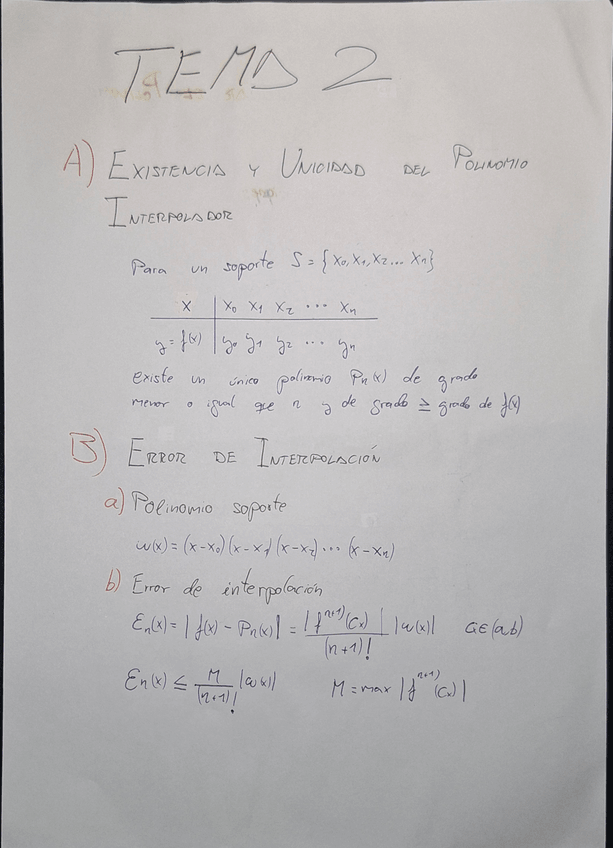 TEMA 2
A) EXISTENCIA Y UNICIDAD DEL POLINOMIO
INTERPOLADOR
Para un soporte S = {x₀, x₁, x₂... xₙ}
x | x₀ x₁ x₂ ... xₙ
y = f(x) | y₀ y₁ y₂ ... yₙ
existe un único polinomio Pₙ(x) de grado
menor o igual que n y de grado ≥ grado de f(x)
B) ERROR DE INTERPOLACIÓN
a) Polinomio soporte
ω(x) = (x-x₀)(x-x₁)(x-x₂)...(x-xₙ)
b) Error de interpolación
Ɛₙ(x) = |f(x) - Pₙ(x)| = |fⁿ⁺¹⁾(Cₓ)|/(n+1)! |ω(x)| Cₓ∈(a,b)
Ɛₙ(x) ≤ M/(n+1)! |ω(x)| M = max |fⁿ⁺¹⁾(Cₓ)|